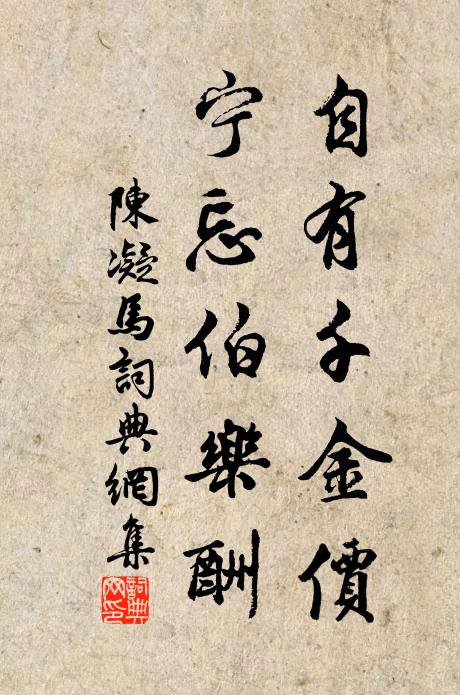 自有千金價
宁忘伯樂酬
陳凝馬詞典網集
詞典
网印